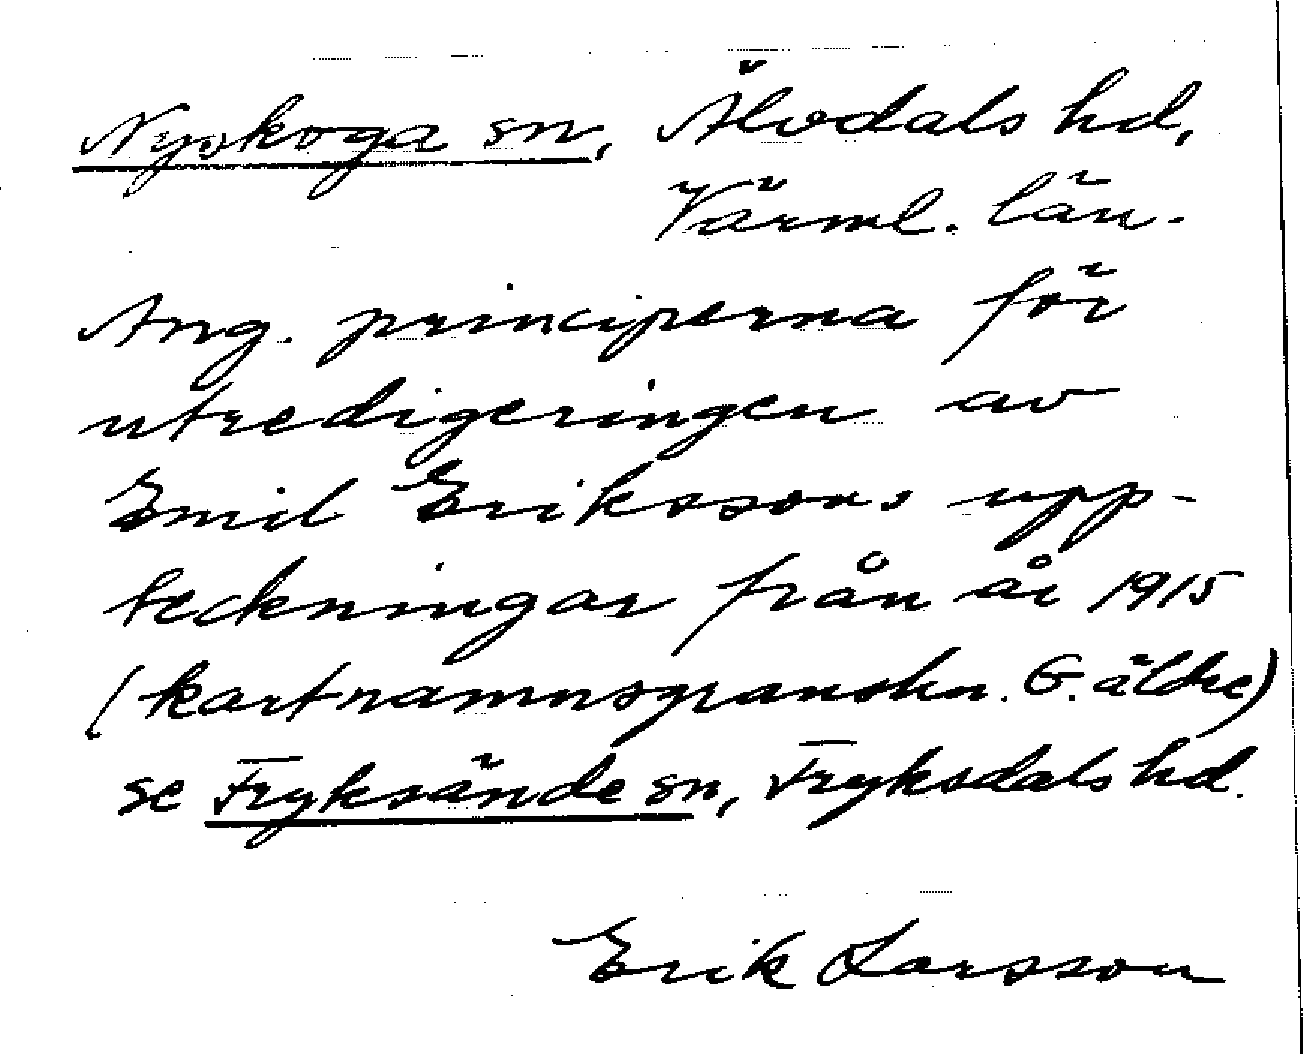 Nyskoga sn, Älvdals hd,
Värml. län.
Ang. principerna för
utredigeringen av
Emil Erikssons upp-
teckningar från år 1915
(kartnamnsgranskn. G. äldre)
se Fryksände sn, Fryksdals hd.
Erik Larsson